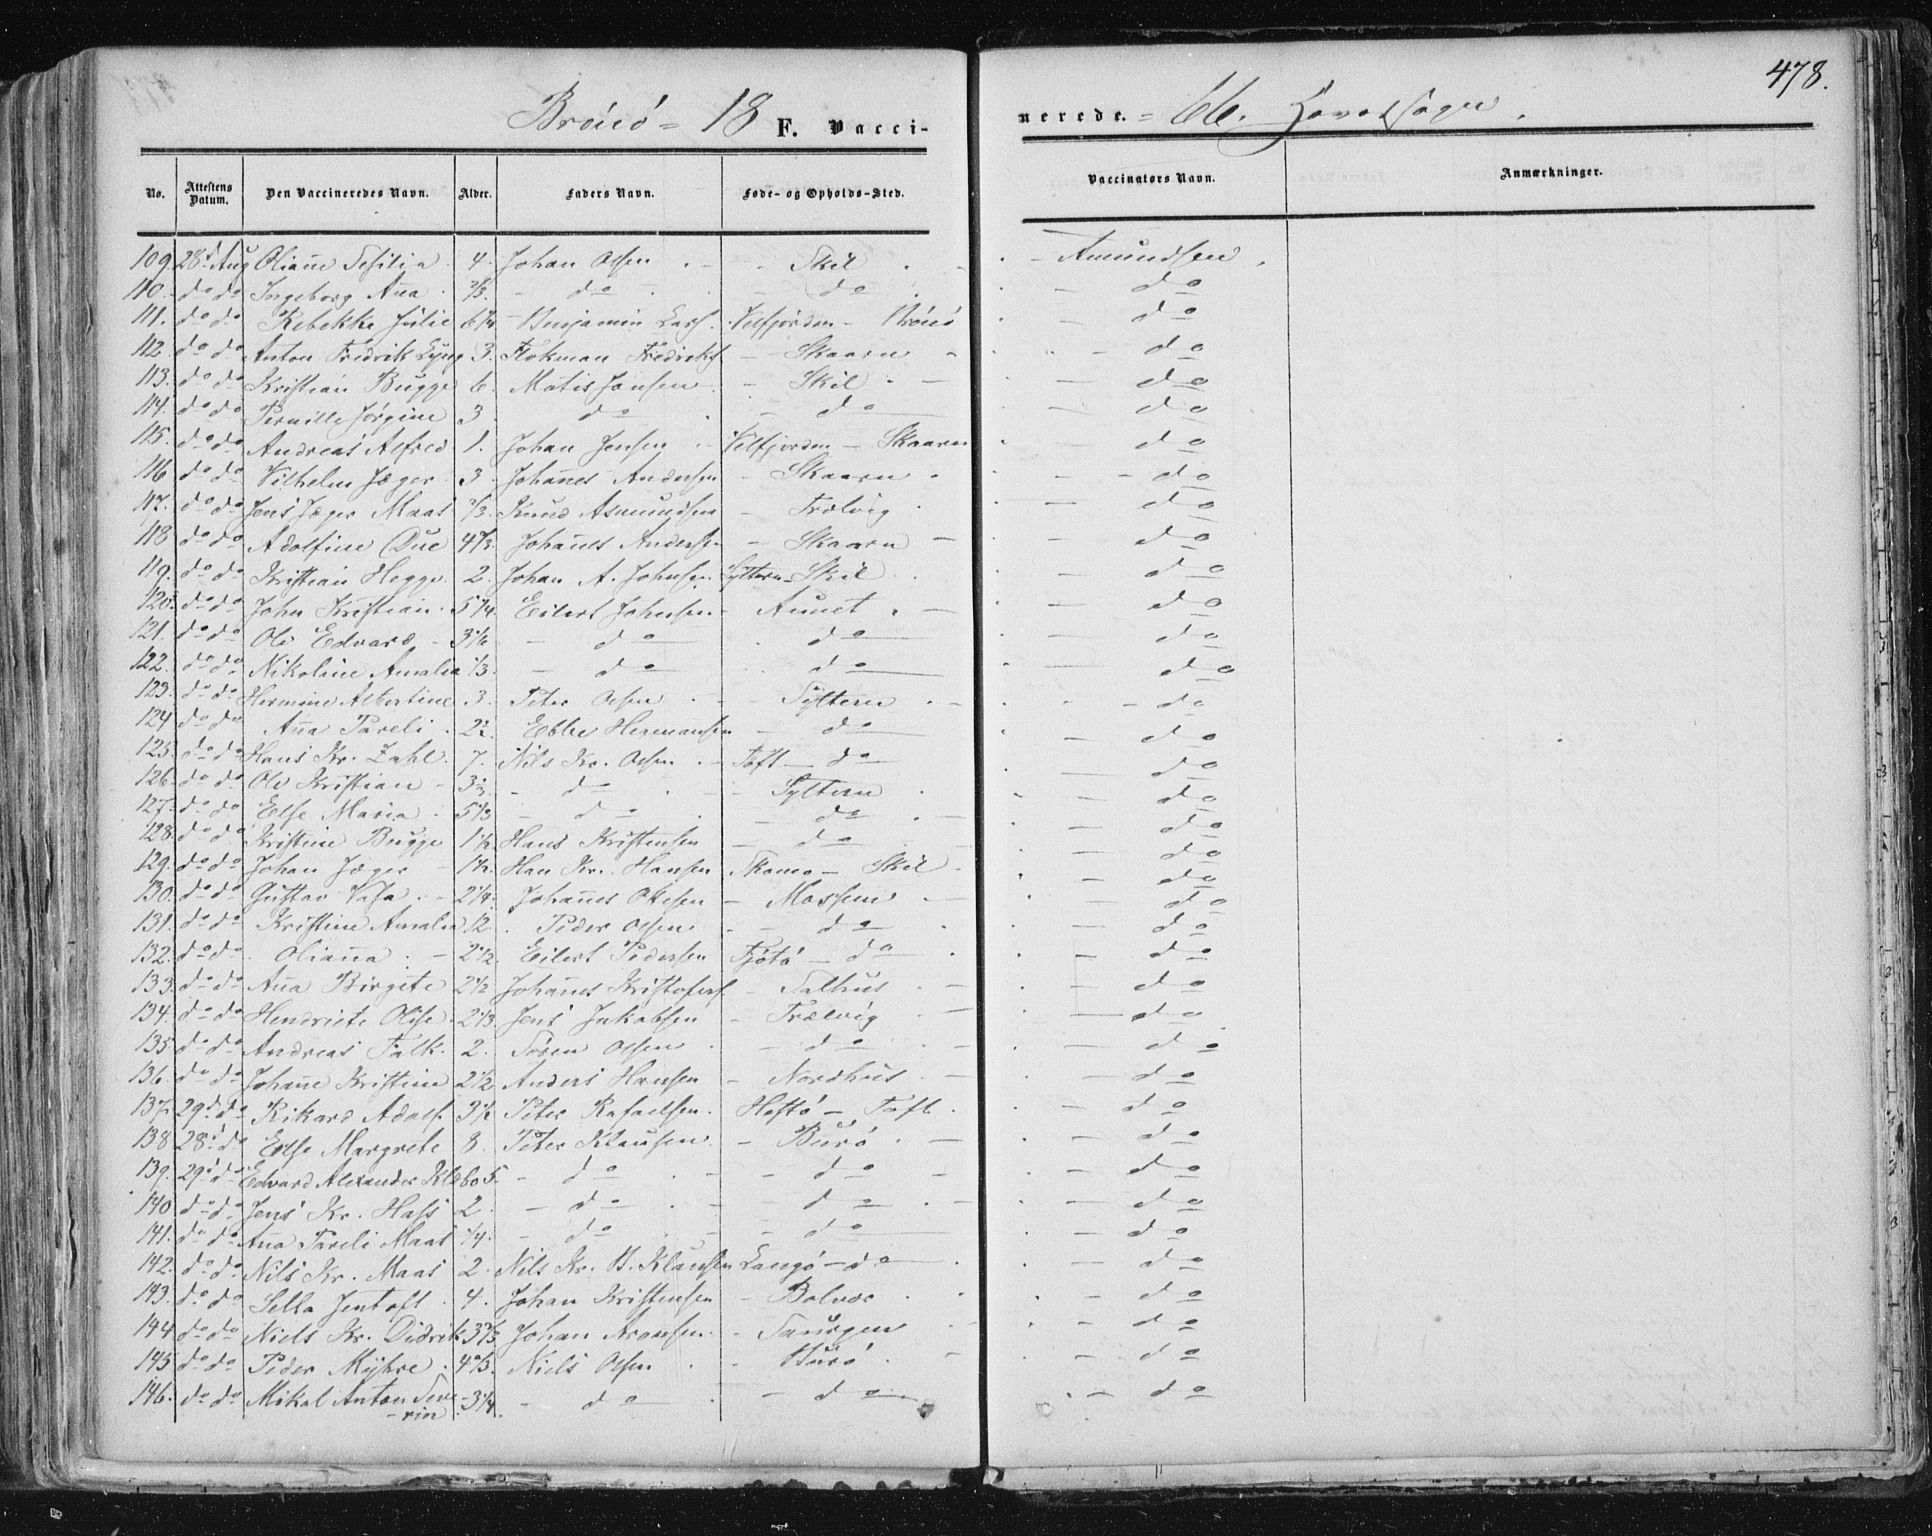 478.
Brönö = 18 F. Vacci-
nerede. = 66. Hovedsogn.
No. Attestens Datum. Den Vaccineredes Navn. Alder. Faders Navn. Føde- og Opholds-Sted. Vaccinators Navn. Anmærkninger.
109. 28d Aug Oliane Sesilia 4. Johan Olsen - Skil - Amundsen.
110. do do Ingeborg Aña 2/3. - do do - do
111. do do Rebekke Julie 6 1/4 Benjamin Lars. Velfjorden - Brönö - do
112. do do Anton Fredrik Lyng 3. Flokman Fredriks - Skaarn - do
113. do do Kristian Bugge 6. Matis Jansen - Skil - do
114. do do Pernille Jörgine 3. do - do - do
115. do do Andreas Alfred 1. Johan Jensen Velfjorden - Skaarn - do
116 do do Vilhelm Jæger 3. Johañes Andersen - Skaarn - do
117. do do Jens Jæger Maas 2/3. Knud Asmundsen - Trælvig - do
118 do do Adolfine Due 4 2/3. Johañes Andersen - Skaarn - do
119. do do Kristian Hegge 2. Johan A. Johnsen Syltern - Skil - do
120. do do John Kristian 5 1/4 Eilert Johnsen - Aunet - do
121. do do Ole Edvard 3 1/6 - do do - do
122. do do Nikoline Amalia 1/3. - do do - do
123. do do Hermine Albertine 3. Peter Olsen - Syltern - do
124 do do Aña Pareli 2 1/2. Ebbe Hermansen - do - do
125. do do Hans Kr. Zahl 7. Nils Kr. Olsen Toft - do - do
126. do do Ole Kristian 3 1/2. - do - Syltern - do
127. do do Else Maria 5 1/3 - do - do - do
128. do do Kristine Bugge 1 1/2. Hans Kristensen - do - do
129. do do Johan Jæger 1 1/2. Han Kr. Hansen - Skil - do
130. do do Gustav Vasa 2 1/4. Johañes Olsen - Mossem - do
131. do do Kristine Amalia 12. Peder Olsen - do - do
132. do do Oliaña 2 1/2. Eilert Pedersen Tjötö - do - do
133. do do Aña Birgete 2 1/2 Johañes Kristofers. - Salhus - do
134. do do Hendriete Olise 2 1/3. Jens Jakobsen - Trælvig - do
135 do do Andreas Falk 2. Sören Olsen - do - do
136. do do Johañe Kristine 2 1/2 Anders Hansen - Nordhus - do
137. 29d do Rikard Adolf 3 1/2 Peter Rafaelsen - Toft - do
138 28d do Else Margrete 8. Peter Klausen - Burö - do
139. 29d do Edvard Alexander Klæbo 5. - do - do - do
140 do do Jens Kr. Hass 2. - do - do - do
141. do do Aña Pareli Maas 1/4. - do - do - do
142. do do Nils Kr. Maas 2. Nils Kr. B. Klausen Langö - do - do
143. do do Sella Jentoft 4. Johan Kristensen - Bolvær - do
144 do do Niels Kr. Didrik 3 2/3. Johan Aronsen - - do
145 do do Peder Myhre 4 2/3. Niels Olsen - Burö - do
146. do do Mikal Anton Seve- 3 1/4. - do - do - do
rin